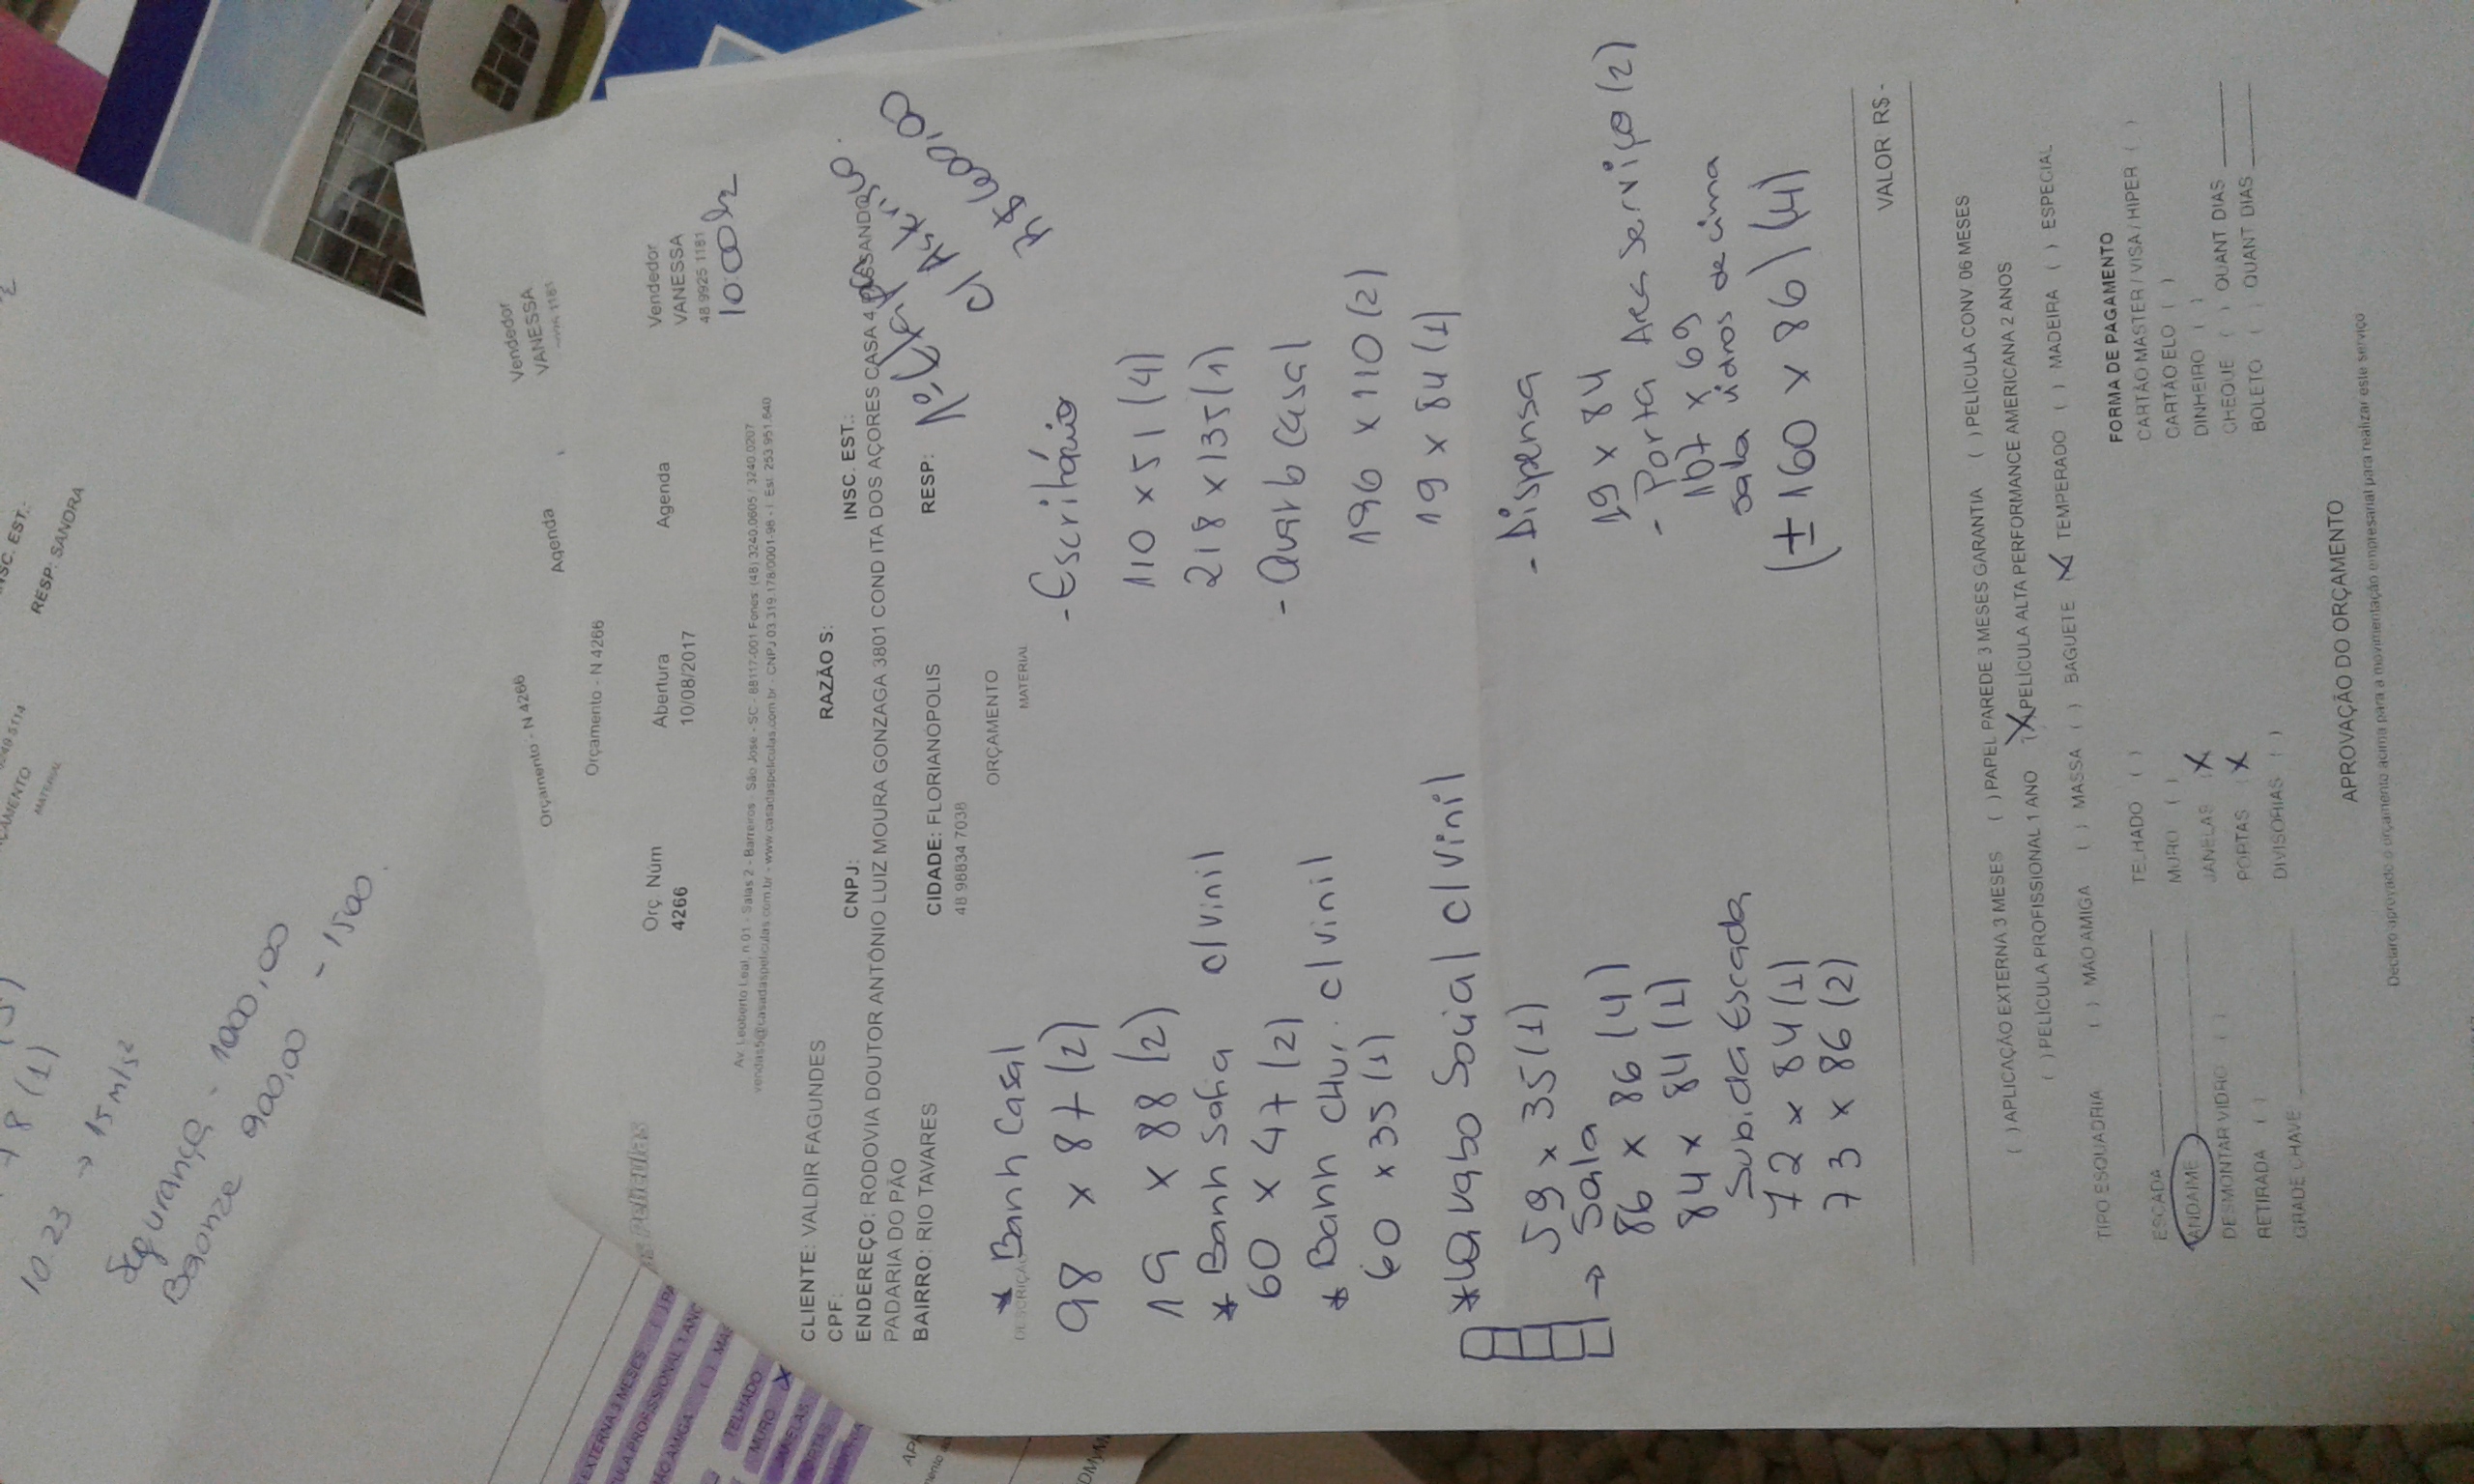 NSC. EST.:
RESP: SANDRA
MATERIAL
8 (1)
10.23 → 15 M/s²
Segurança - 1000,00
Bronze 900,00 - 1500.
Orçamento - N 4266
Agenda
Vendedor
VANESSA
Orçamento - N 4266
Orç Núm
4266
Abertura
10/08/2017
Agenda
Vendedor
VANESSA
48 9925 1181
10:00h
Av. Leoberto Leal, n 01 - Salas 2 - Barreiros - São Jose - SC - 88117-001 Fones: (48) 3240.0605 / 3240.0207
vendas5@casadaspeliculas.com.br - www.casadaspeliculas.com.br - CNPJ 03.319.178/0001-98 - I. Est. 253.951.640
CLIENTE: VALDIR FAGUNDES
RAZÃO S:
CPF:
CNPJ:
INSC. EST.:
ENDEREÇO: RODOVIA DOUTOR ANTÔNIO LUIZ MOURA GONZAGA 3801 COND ITA DOS AÇORES CASA 4
PADARIA DO PÃO
BAIRRO: RIO TAVARES
CIDADE: FLORIANOPOLIS
RESP:
48 98834 7038
ORÇAMENTO
DESCRIÇÃO
MATERIAL
* Banh Casal
98 x 87 (2)
19 x 88 (2)
* Banh Safia c/vinil
60 x 47 (2)
* Banh CHur. c/vinil
60 x 35 (1)
* Lavabo Social c/vinil
59 x 35 (1)
→ Sala
86 x 86 (4)
84 x 84 (1)
Subida Escada
72 x 84 (1)
73 x 86 (2)
- Escritório
110 x 51 (4)
218 x 135 (1)
- Quarto Casal
196 x 110 (2)
19 x 84 (1)
- Dispensa
19 x 84
- Porta Area Serviço (2)
167 x 69
sala vidros de cima
(± 160 x 86) (4)
VALOR: R$ -
( ) APLICAÇÃO EXTERNA 3 MESES ( ) PAPEL PAREDE 3 MESES GARANTIA ( ) PELÍCULA CONV. 06 MESES
( ) PELÍCULA PROFISSIONAL 1 ANO (X) PELÍCULA ALTA PERFORMANCE AMERICANA 2 ANOS
TIPO ESQUADRIA ( ) MÃO AMIGA ( ) MASSA ( ) BAGUETE (X) TEMPERADO ( ) MADEIRA ( ) ESPECIAL
ESCADA
ANDAIME
DESMONTAR VIDRO ( )
RETIRADA ( )
GRADE CHAVE
TELHADO ( )
MURO ( )
JANELAS (X)
PORTAS (X)
DIVISÓRIAS ( )
FORMA DE PAGAMENTO
CARTÃO MASTER / VISA / HIPER ( )
CARTÃO ELO ( )
DINHEIRO ( )
CHEQUE ( ) QUANT DIAS
BOLETO ( ) QUANT DIAS
APROVAÇÃO DO ORÇAMENTO
Declaro aprovado o orçamento acima para a movimentação empresarial para realizar este serviço